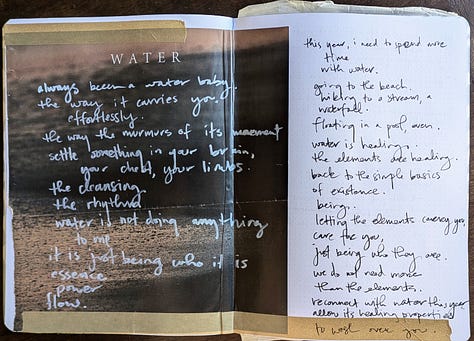 WATER
always been a water baby.
the way it carries you.
effortlessly.
the way the murmurs of its movement
settle something in your brain,
your chest, your limbs.
the cleansing.
the rhythm
water is not doing anything
to me
it is just being who it is
essence.
power
flow.
this year, i need to spend more
time
with water.
going to the beach.
hiking to a stream, a
waterfall.
floating in a pool, even.
water is healing.
the elements are healing.
back to the simple basics
of existence.
being.
letting the elements carry you,
care for you,
just being who they are.
we do not need more
than the elements.
reconnect with nature this year,
allow its healing properties
to wash over you.